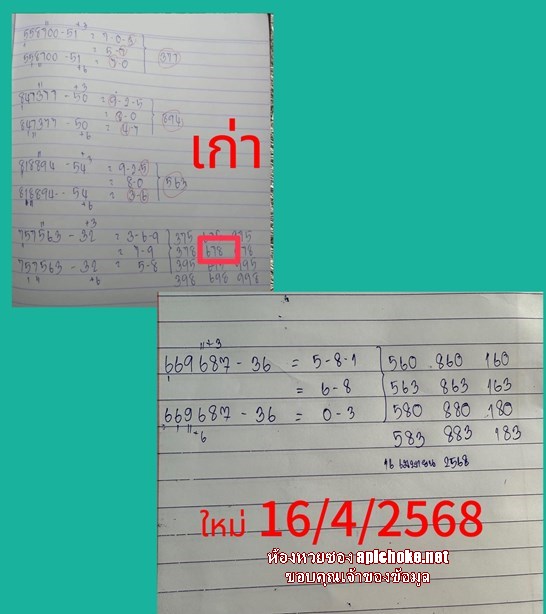 558700-51 = 7-0-3
= 5-0
558700-51 = 9-0
377
+3
847377-50 = 9-2-5
= 3-0
847377-50 = 4-7
894
+6
+3
818894-54 = 9-2-5
= 8-0
818894-54 = 3-6
563
+6
เก่า
+3
757563-32 = 3-6-9
= 7-9
757563-32 = 5-8
375 675 975
378 678 978
395 695 995
398 698 998
+6
+3
669687-36 = 5-8-1
= 6-8
669687-36 = 0-3
+6
560 860 160
563 863 163
580 880 180
583 883 183
16 เมษายน 2568
ใหม่ 16/4/2568
ห้องหวยซอง apichoke.net
ขอบคุณเจ้าของข้อมูล